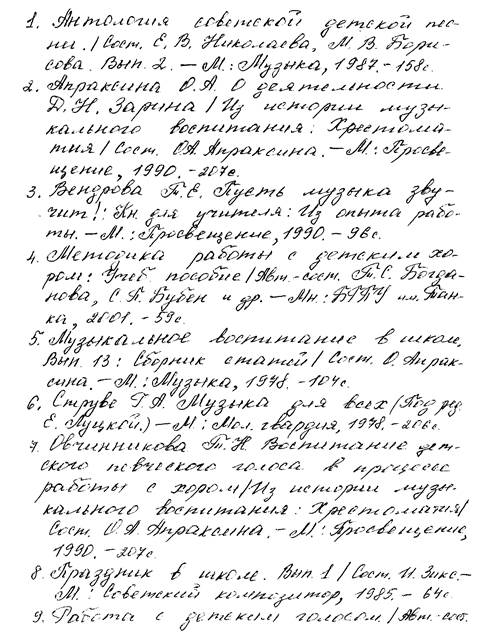 1. Антология советской детской пес-
ни. / Сост. Е. В. Николаева, М. В. Бори-
сова. Вып. 2. – М.: Музыка, 1987. - 158с.
2. Апраксина О.А. О деятельности
Д. Н. Зарина / Из истории музы-
кального воспитания: Хрестома-
тия / Сост. О.А. Апраксина. – М.: Просве-
щение, 1990. - 207с.
3. Вендрова Т.Е. Пусть музыка зву-
чит!: Кн. для учителя: Из опыта рабо-
ты. – М.: Просвещение, 1990. – 96с.
4. Методика работы с детским хо-
ром: Учеб. пособие / Авт.-сост. Т.С. Богда-
нова, С. Г. Бубен и др. – Мн.: БГПУ им. Тан-
ка, 2001. - 59с.
5. Музыкальное воспитание в школе.
Вып. 13: Сборник статей / Сост. О. Апрак-
сина. – М.: Музыка, 1978. - 104с.
6. Струве Г.А. Музыка для всех / Под ред.
Е. Луцкой.) – М.: Мол. гвардия, 1978. - 206с.
7. Овчинникова Т. Н. Воспитание дет-
ского певческого голоса в процессе
работы с хором / Из истории музы-
кального воспитания: Хрестоматия /
Сост. О. А. Апраксина. – М.: Просвещение,
1990. - 207с.
8. Праздник в школе. Вып. 1 / Сост. И. Зикс. –
М.: Советский композитор, 1985. – 64с.
9. Работа с детским голосом / Авт.-сост.